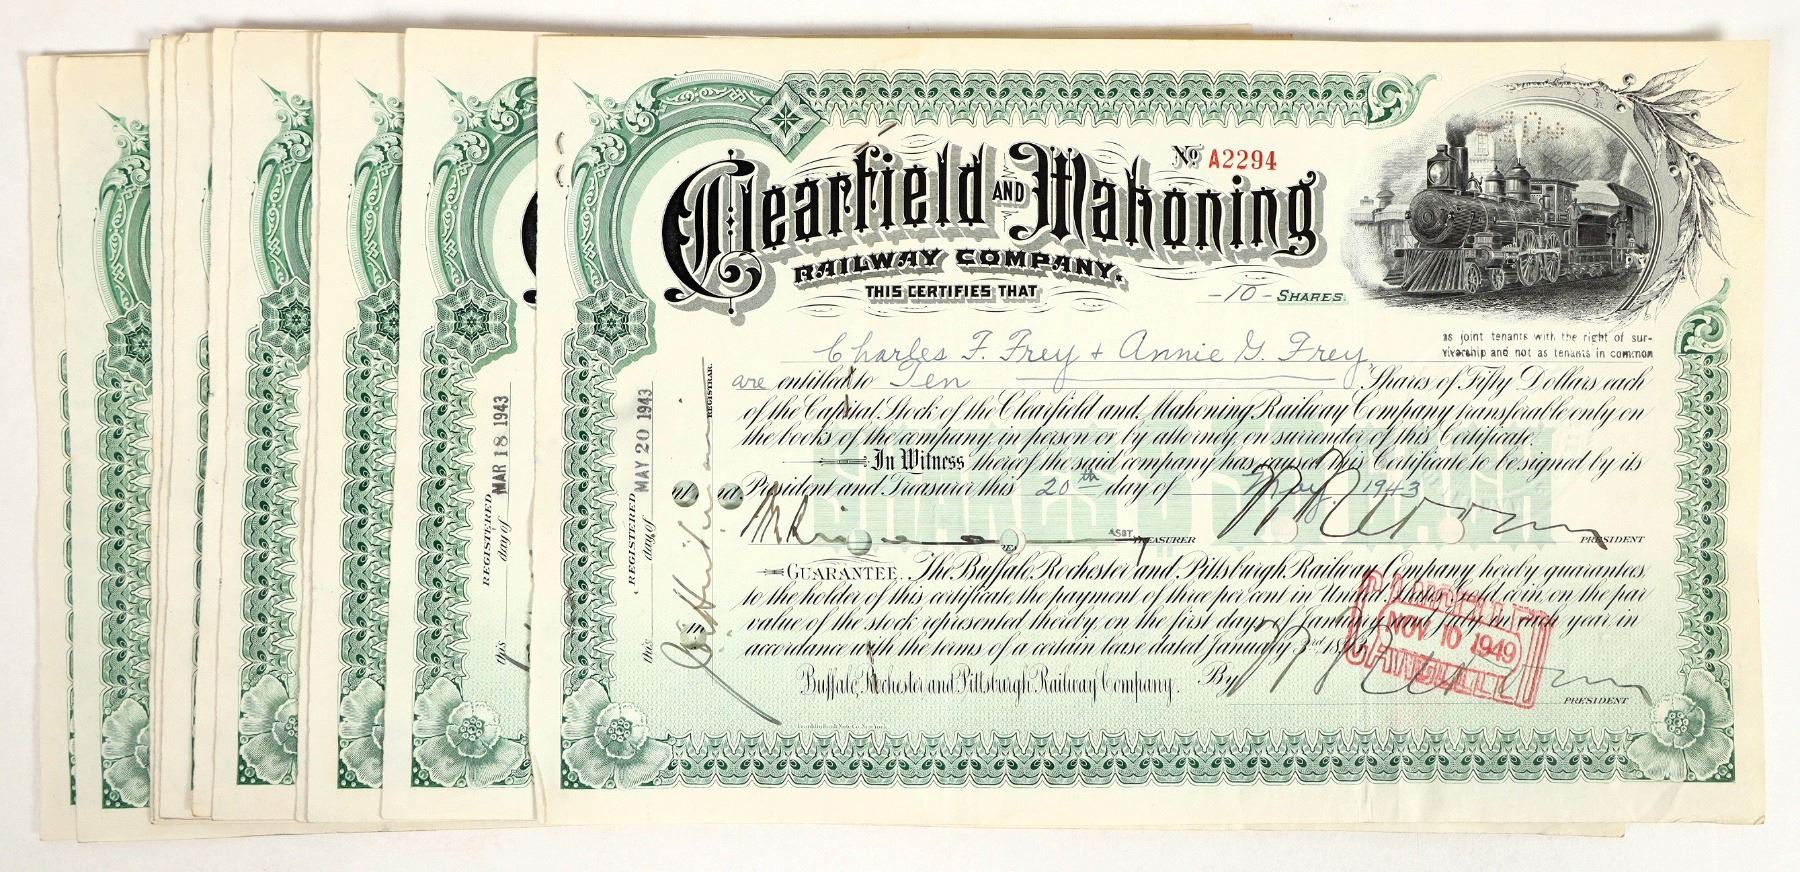 Nº A2294
Clearfield AND Mahoning
RAILWAY COMPANY.
THIS CERTIFIES THAT
-10- SHARES.
as joint tenants with the right of sur-
vivorship and not as tenants in common
Charles F. Frey + Annie G. Frey
are entitled to Ten Shares of Fifty Dollars each
of the Capital Stock of the Clearfield and Mahoning Railway Company transferable only on
the books of the company in person or by attorney on surrender of this Certificate.
In Witness thereof the said company has caused this Certificate to be signed by its
President and Treasurer this 20th day of May 1943
ASST. TREASURER
PRESIDENT
GUARANTEE. The Buffalo, Rochester and Pittsburgh Railway Company, hereby guarantees,
to the holder of this certificate, the payment of three per cent in United States gold coin, on the par
value of the stock represented thereby, on the first day of January and July in each year in
accordance with the terms of a certain lease dated January 3rd
Buffalo, Rochester and Pittsburgh Railway Company. By
PRESIDENT
CANCELLED
NOV 10 1949
CANCELLED
Franklin Bank Note Co. New York
REGISTERED
this day of
MAY 20 1943
REGISTRAR.
REGISTERED
this day of
MAR 18 1943